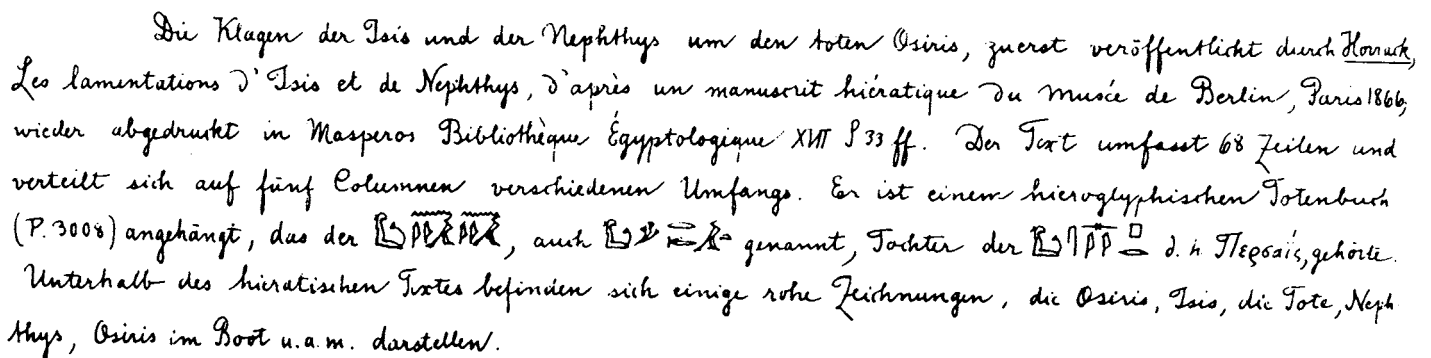 Die Klagen der Isis und der Nephthys um den toten Osiris, zuerst veröffentlicht durch Horrack,
Les lamentations d'Isis et de Nephthys, d'après un manuscrit hiératique du musée de Berlin, Paris 1866;
wieder abgedruckt in Masperos Bibliothèque Égyptologique XVII S 33 ff. Der Text umfasst 68 Zeilen und
verteilt sich auf fünf Columnen verschiedenen Umfangs. Er ist einem hieroglyphischen Totenbuch
(P. 3008) angehängt, das der , auch genannt, Tochter der d. h. Περσαΐς, gehörte.
Unterhalb des hieratischen Textes befinden sich einige rohe Zeichnungen, die Osiris, Isis, die Tote, Neph
thys, Osiris im Boot u. a. m. darstellen.